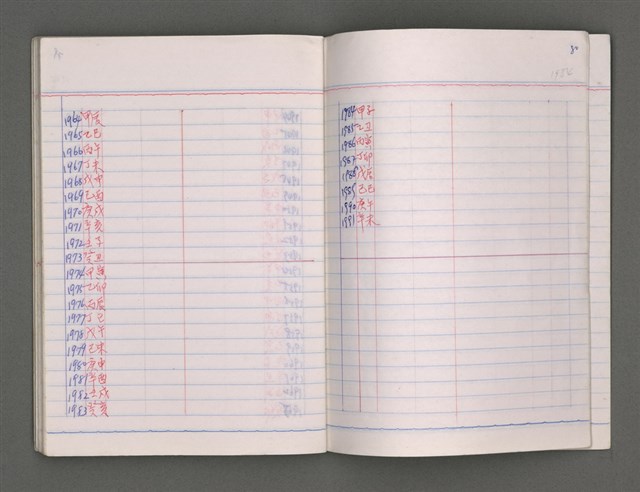 1964甲辰
1965乙巳
1966丙午
1967丁未
1968戊申
1969乙酉
1970庚戌
1971辛亥
1972壬子
1973癸丑
1974甲寅
1975乙卯
1976丙辰
1977丁巳
1978戊午
1979乙未
1980庚申
1981辛酉
1982壬戌
1983癸亥
80
1984甲子
1985乙丑
1986丙寅
1987丁卯
1988戊辰
1989己巳
1990庚午
1991辛未